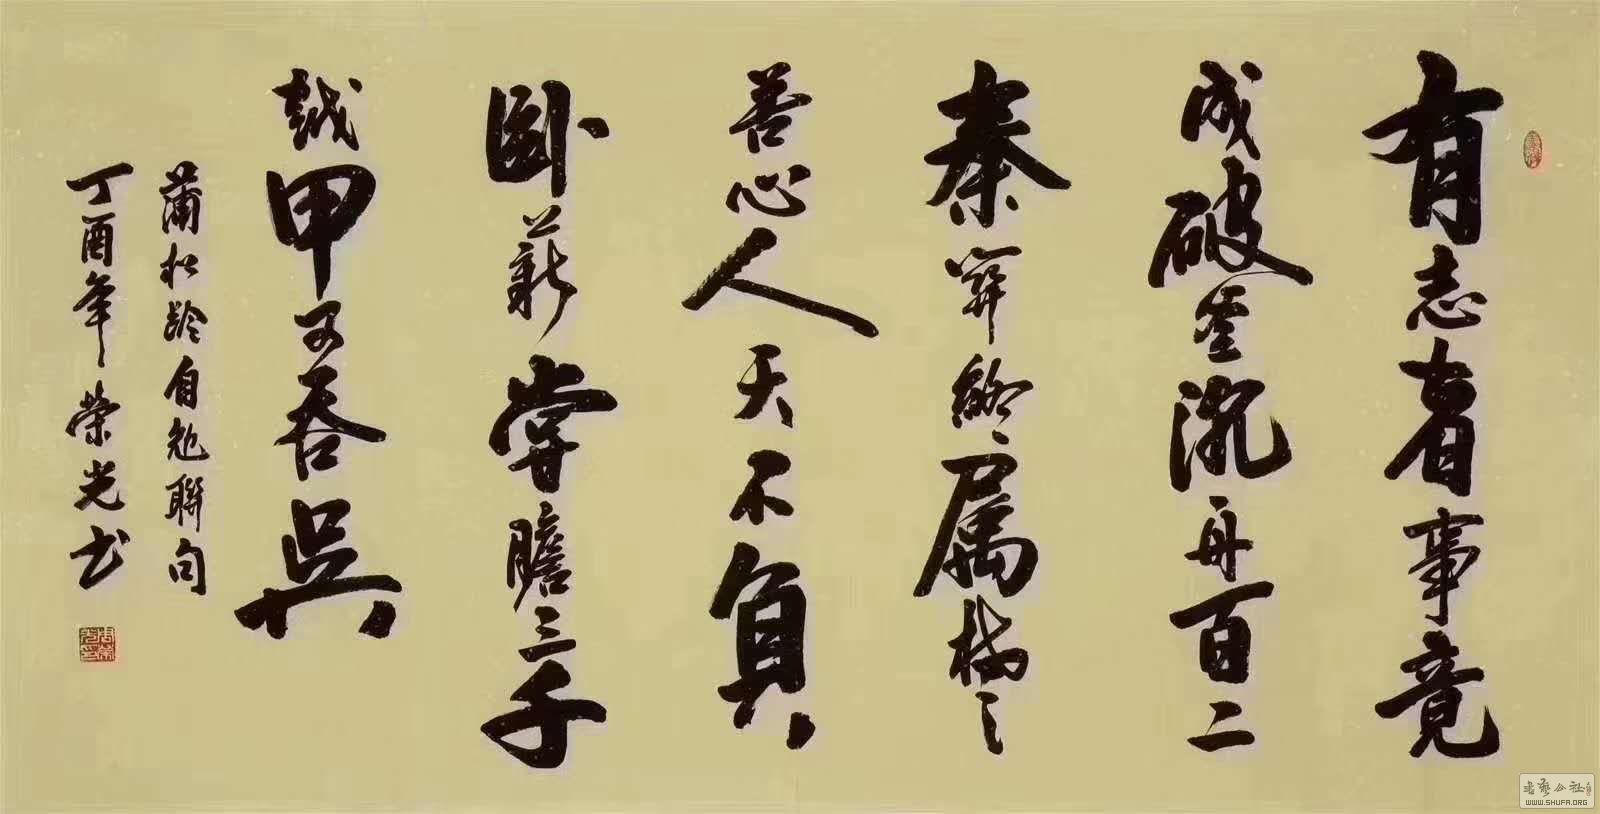 有志者事竟
成破釜沉舟百二
秦關終属楚
苦心人天不負
卧薪嘗膽三千
越甲可吞吳
蒲松齡自勉聯句
丁酉年榮光书
书艺公社
WWW.SHUFA.ORG